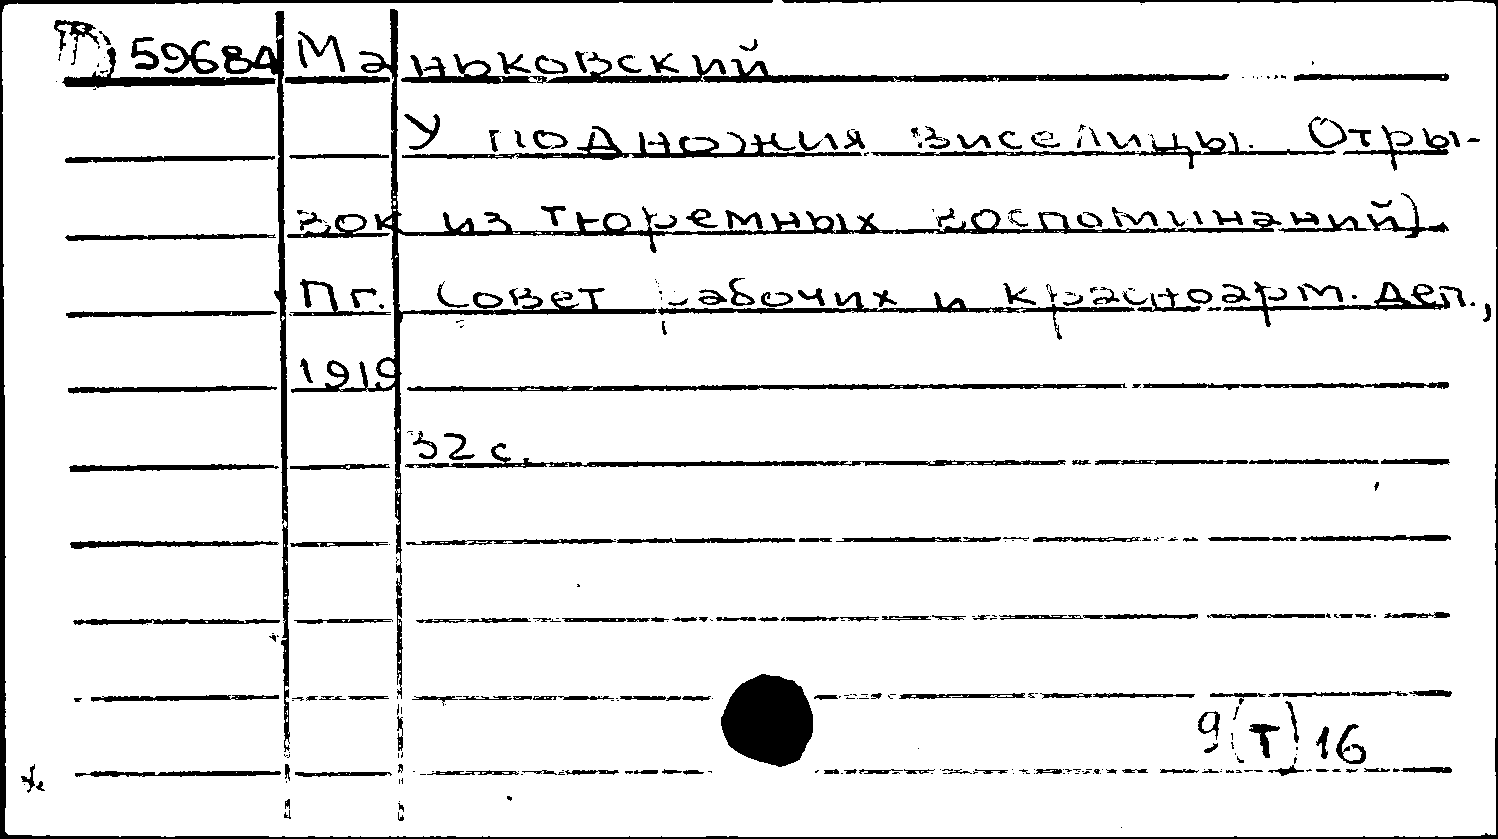 59684 Маньковский
У подножия виселицы. Отры-
вок из тюремных воспоминаний).
Пг. Совет рабочих и красноарм. деп.,
1919
32 с.
9(т)16